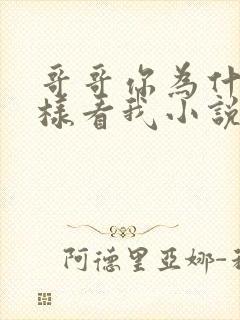 哥哥你為什
樣看我小說
阿德里亞娜-